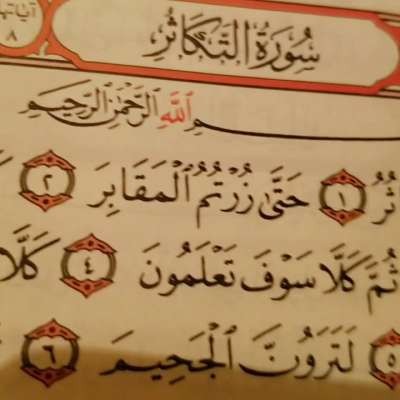 آياتها
٨
سُورَةُ التَّكَاثُرِ
ـسْمِ ٱللَّهِ ٱلرَّحْمَٰنِ ٱلرَّحِيمِ
ـاثُرُ ١ حَتَّىٰ زُرْتُمُ ٱلْمَقَابِرَ ٢
ثُمَّ كَلَّا سَوْفَ تَعْلَمُونَ ٤ كَلَّا
٥ لَتَرَوُنَّ ٱلْجَحِيمَ ٦